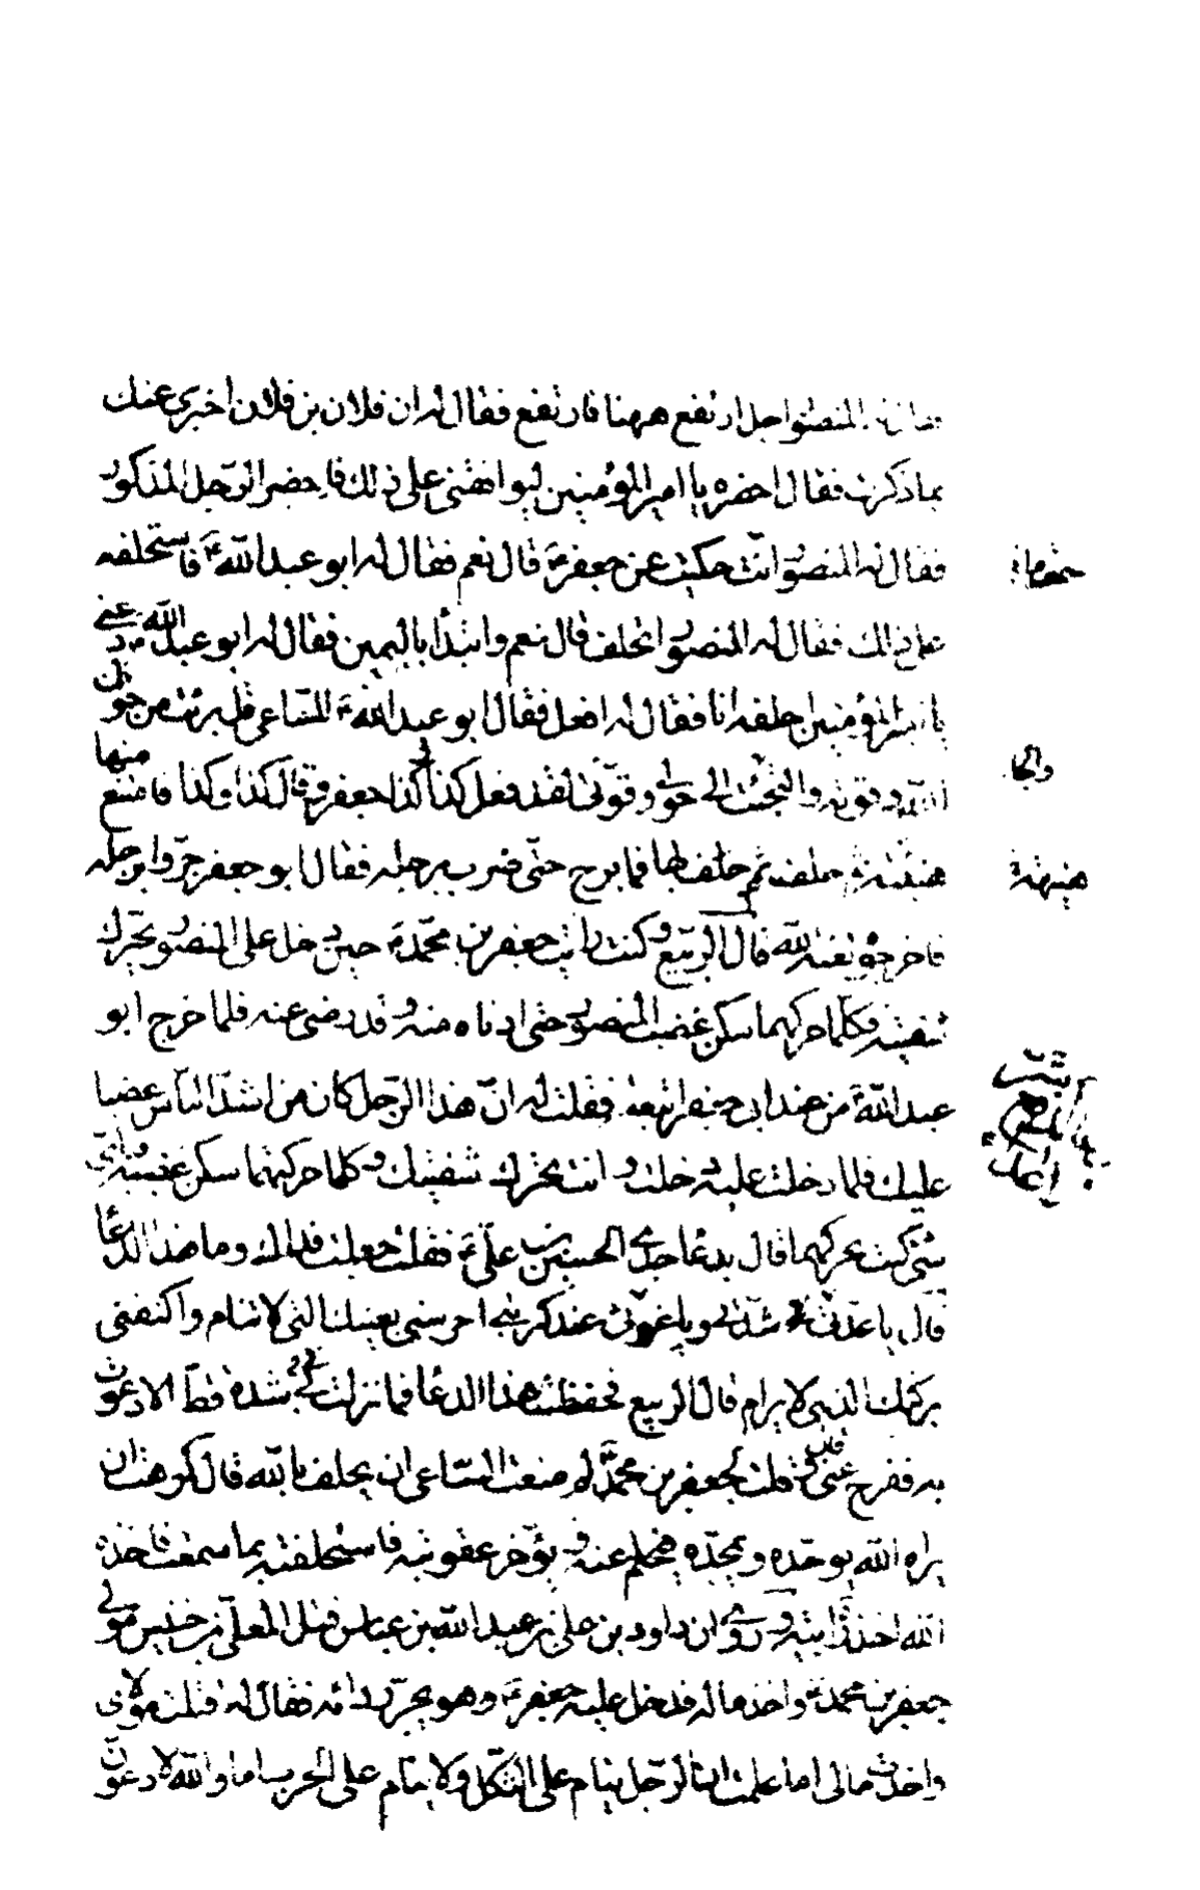 فقال له المنصور اجل ارتفع ههنا فارتفع فقال له ان فلان بن فلان اخبرني عنك
بما ذكرت فقال احضره يا امير المؤمنين ليوافقني على ذلك فاحضر الرّجل المذكور
فقال له المنصور انت حكيت عن جعفر ع قال نعم فقال له ابو عبد الله ع فاستحلفه
على ذلك فقال له المنصور اتحلف قال نعم وابتدأ باليمين فقال له ابو عبد الله ع دعني
يا امير المؤمنين احلفه انا فقال له افعل فقال ابو عبد الله ع للسّاعي قل برئت من حول
الله وقوته والتجئت الى حولي وقوّتي لقد فعل كذا وكذا جعفر وقال كذا وكذا فامتنع منها
هنيئة ثم حلف بها فما برح حتّى ضرب برجله فقال ابو جعفر جرّوا برجله
فاخرجوه لعنه الله قال الرّبيع وكنت رايت جعفر بن محمّد ع حين دخل على المنصور يحرّك
شفتيه فكلّما حركهما سكن غضب المنصور حتى ادناه منه وقد رضي عنه فلما خرج ابو
عبد الله ع من عند ابي جعفر اتبعته فقلت له انّ هذا الرّجل كان من اشدّ النّاس غضبا
عليك فلما دخلت عليه دخلت وانت تحرك شفتيك وكلما حركتهما سكن غضبه فبأيّ
شيء كنت تحركهما قال بدعا جدّي الحسين بن عليّ ع فقلت جعلت فداك وما هذا الدعا
قال يا عدّتي عند شدّتي ويا غوثي عند كربتي احرسني بعينك التي لا تنام واكنفني
بركنك الذي لا يرام قال الربيع فحفظت هذا الدعا فما نزلت بي شدة قطّ الا دعوت
به ففرج عنّي قال قلت لجعفر بن محمّد لم منعت السّاعي ان يحلف بالله قال كرهت ان
يراه الله يوحّده ويمجّده فيحلم عنه ويؤخّر عقوبته فاستحلفته بما سمعت فاخذه
الله اخذة رابية وروي ان داود بن علي بن عبد الله بن عباس قتل المعلّى بن خنيس مولى
جعفر بن محمد ع واخذ ماله فدخل عليه جعفر ع وهو يجرّ ردائه فقال له قتلت مولاي
واخذت مالي اما علمت انّ الرّجل ينام على الثّكل ولا ينام على الحرب اما والله لادعونّ
والجا
هنيهة